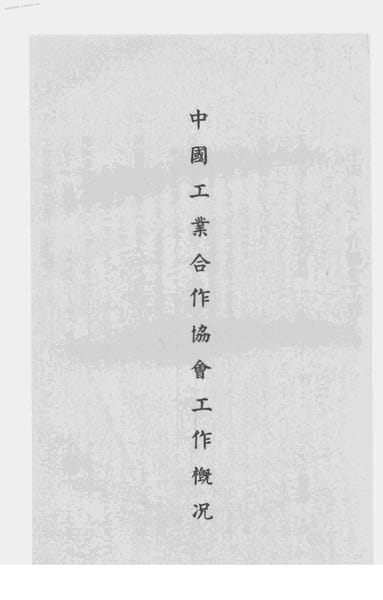 中國工業合作協會工作概况